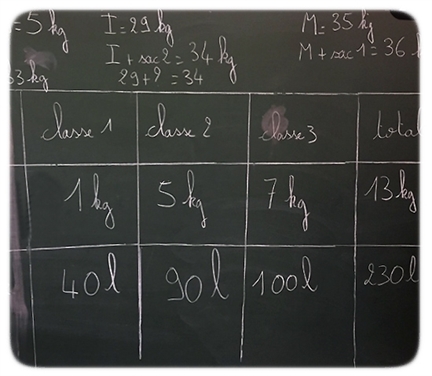 =5 kg I=29 kg M=35 kg
I+sac 2=34 kg M+sac 1=36 k
63 kg 29+?=34
classe 1 classe 2 classe 3 total
1 kg 5 kg 7 kg 13 kg
40 l 90 l 100 l 230 l